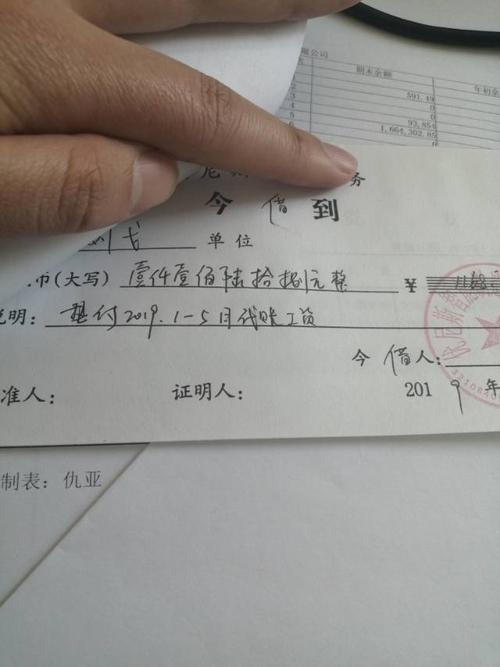 限公司
期末余额 年初余
591.49
0
0
93,854
1,664,302.85
0
尼 务
今 借 到
刘戈 单位
币(大写) 壹仟壹佰陆拾捌元整 ¥
说明: 垫付2019.1-5月代账工资
今 借人:
准人: 证明人: 2019年
制表: 仇亚